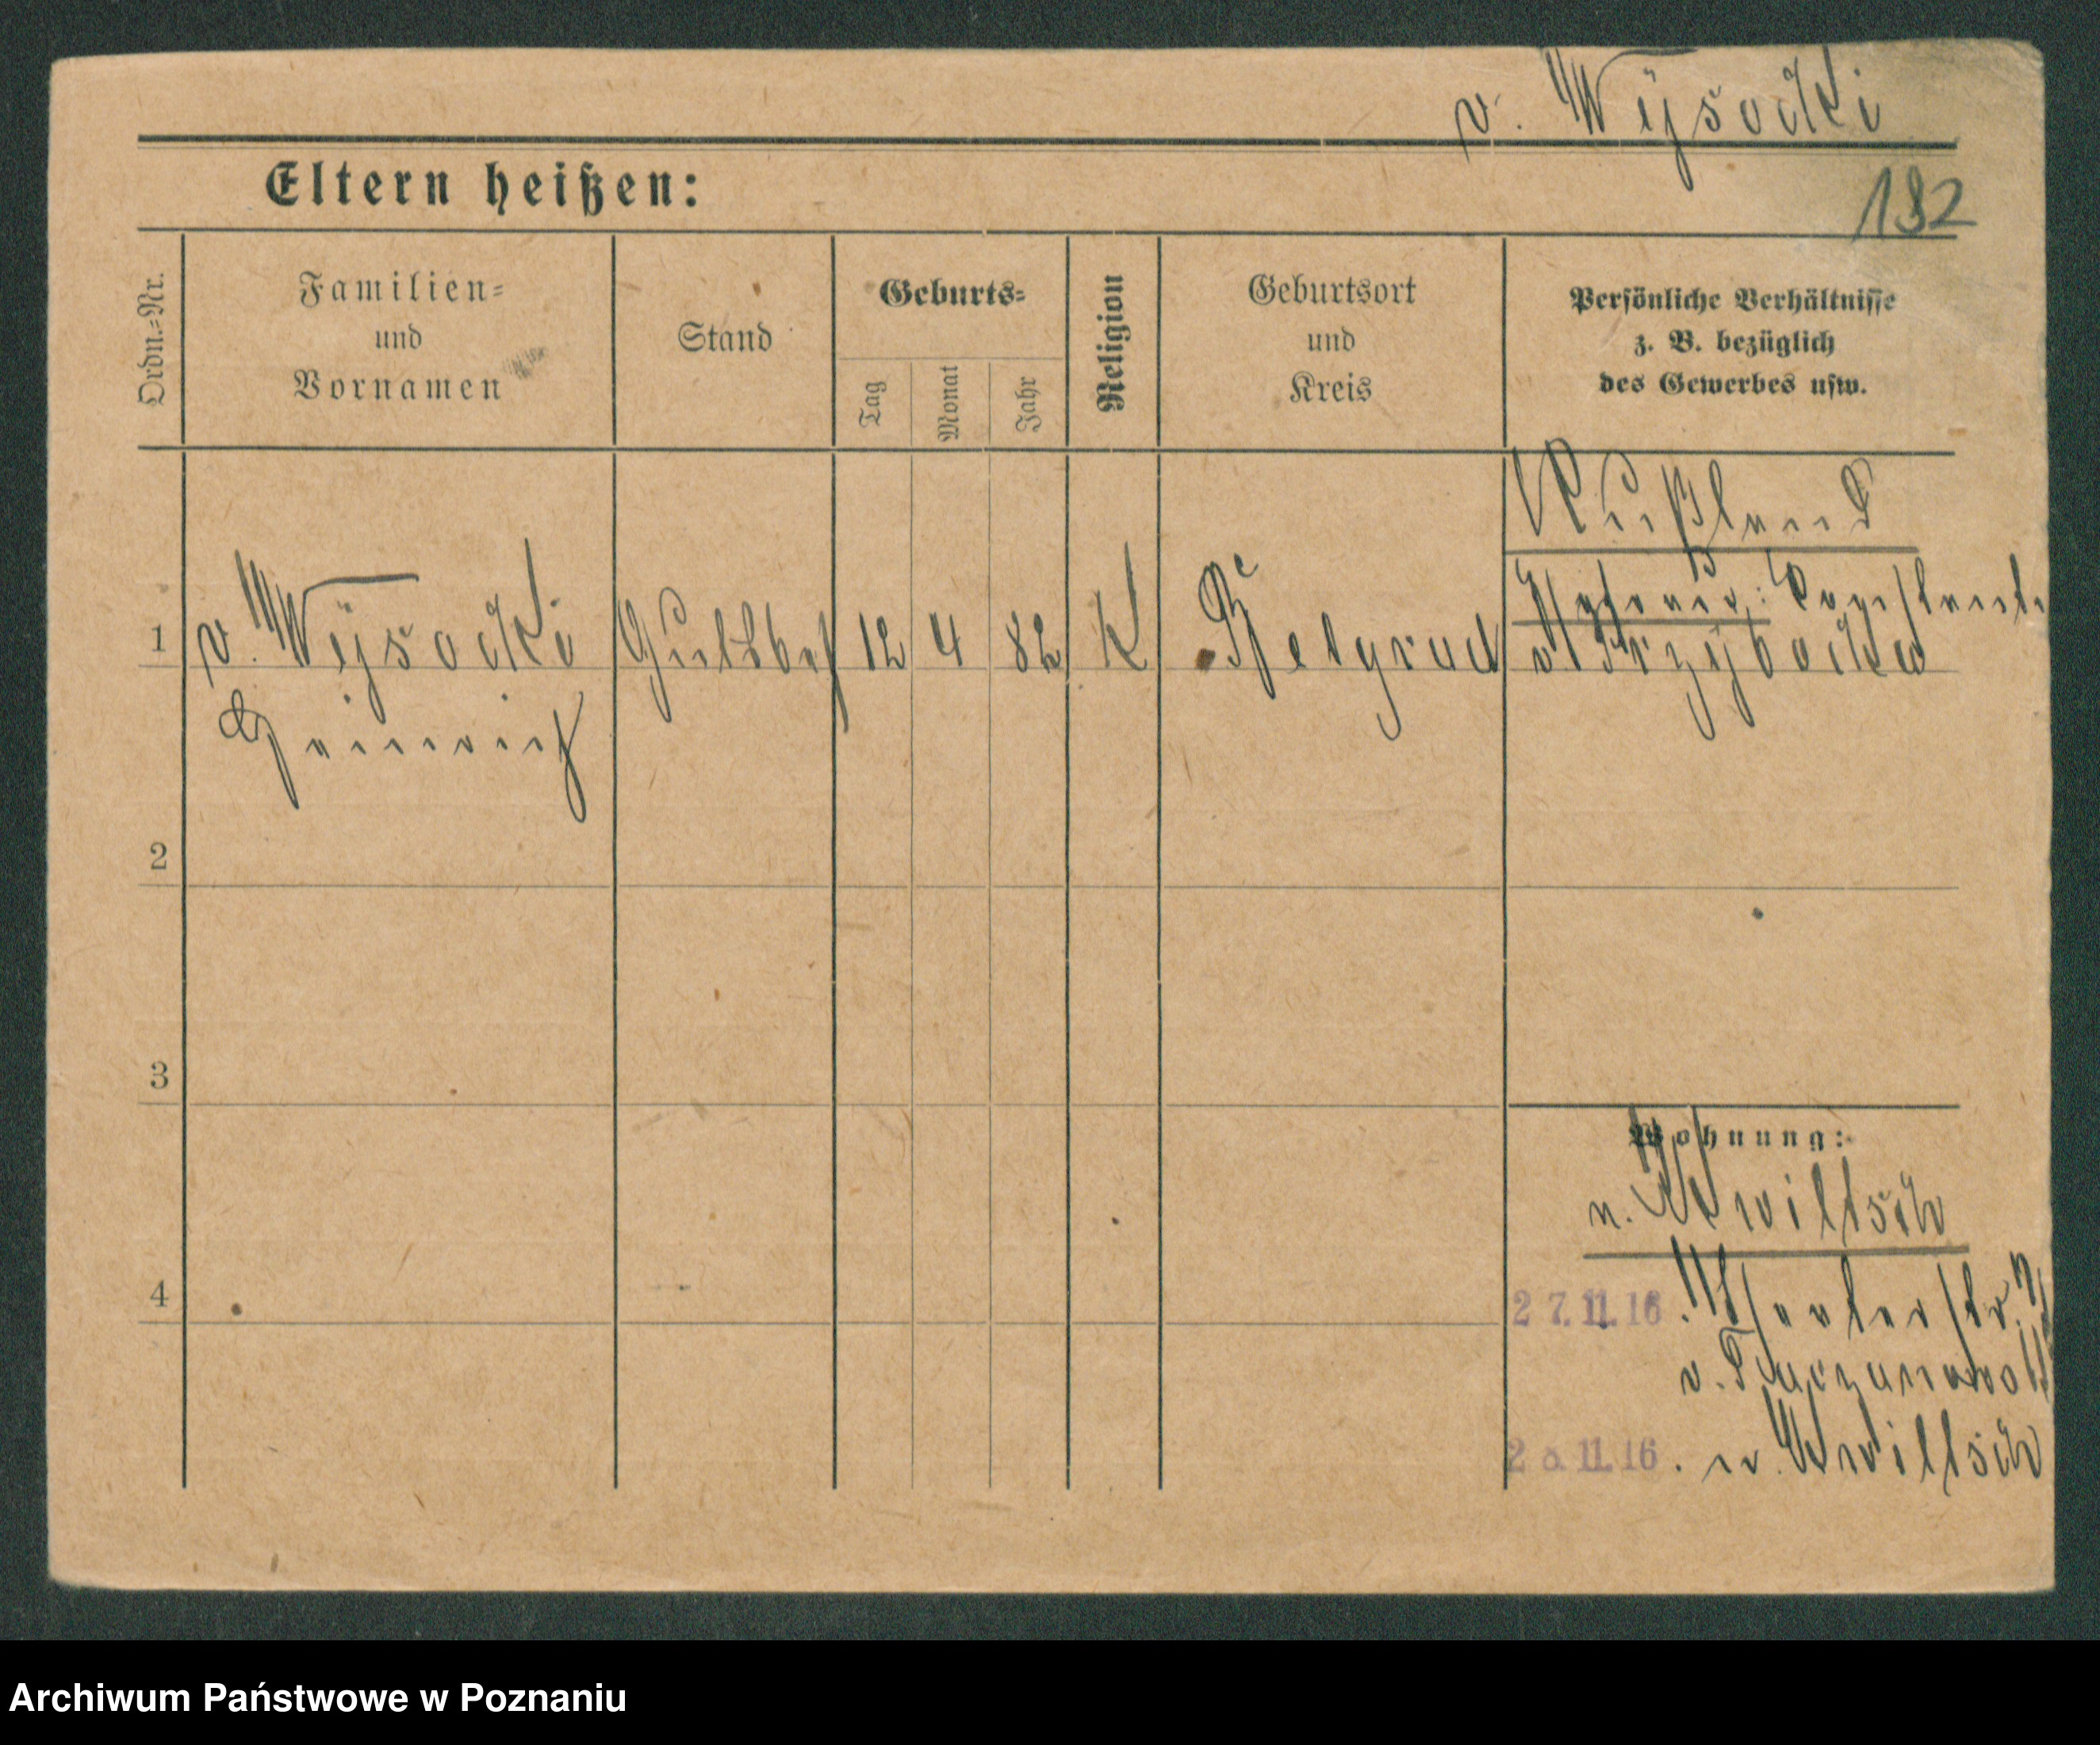 v. Wÿsocki
Eltern heißen:
132
Ordn.=Nr.
Familien=
und
Vornamen
Stand
Geburts=
Tag
Monat
Jahr
Religion
Geburtsort
und
Kreis
Persönliche Verhältnisse
z. B. bezüglich
des Gewerbes usw.
Rußland
1
v. Wÿsocki
Heinrich
Gutsbes
12
4
82
K
Belgrad
2
3
4
Wohnung:
n. Kwiltsch
27.11.16
v.
28.11.16. n. Kwiltsch
Archiwum Państwowe w Poznaniu